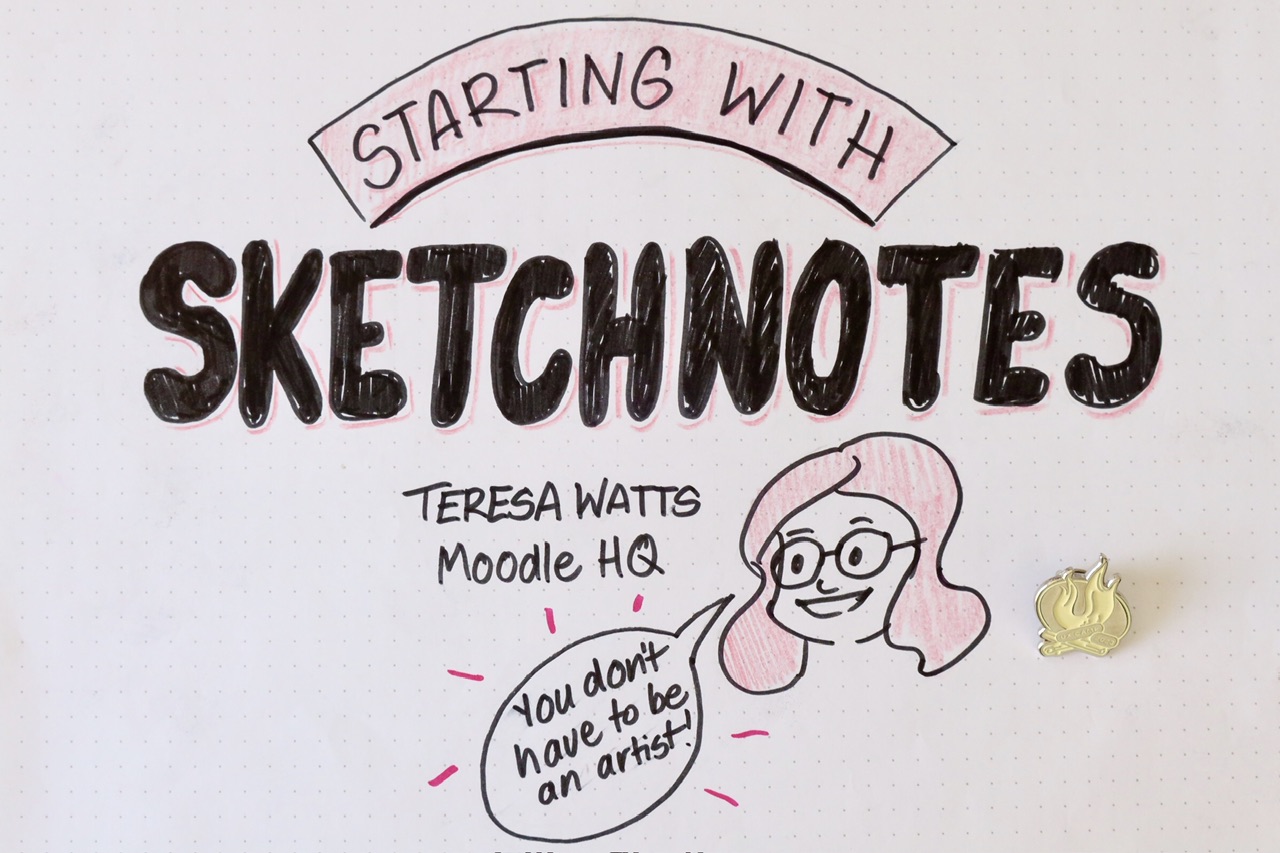 STARTING WITH
SKETCHNOTES
TERESA WATTS
Moodle HQ
You don't
have to be
an artist!